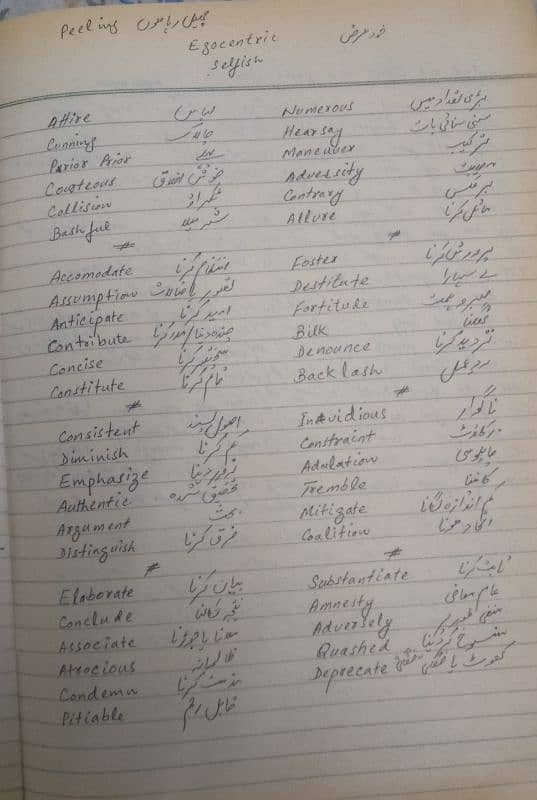 Peeling چھیل رہا ہوں
Egocentric خود غرض
Selfish
Attire لباس
Cunning چالاک
Prior پہلے
Courteous خوش اخلاق
Collision ٹکراؤ
Bashful شرمیلا
#
Accomodate انتظام کرنا
Assumption تصور یا خیالات
Anticipate امید کرنا
Contribute
Concise مختصر کرنا
Constitute قائم کرنا
#
Consistent اصول پسند
Diminish کم کرنا
Emphasize زور دینا
Authentic تحقیق شدہ
Argument بحث
Distinguish فرق کرنا
#
Elaborate بیان کرنا
Conclude نتیجہ نکالنا
Associate ملانا یا جوڑنا
Atrocious ظالمانہ
Condemn مذمت کرنا
Pitiable قابل رحم
Numerous بڑی تعداد میں
Hearsay سنی سنائی بات
Maneuver ترکیب
Adversity مصیبت
Contrary برعکس
Allure مائل کرنا
#
Foster پرورش کرنا
Destitute بے سہارا
Fortitude صبر و ہمت
Bilk
Denounce تردید کرنا
Backlash ردعمل
#
Invidious ناگوار
Constraint رکاوٹ
Adulation چاپلوسی
Tremble کانپنا
Mitigate کم اندازہ لگانا
Coalition اتحاد ہونا
#
Substantiate ثابت کرنا
Amnesty عام معافی
Adversely منفی طور پر
Quashed منسوخ کر دینا
Deprecate